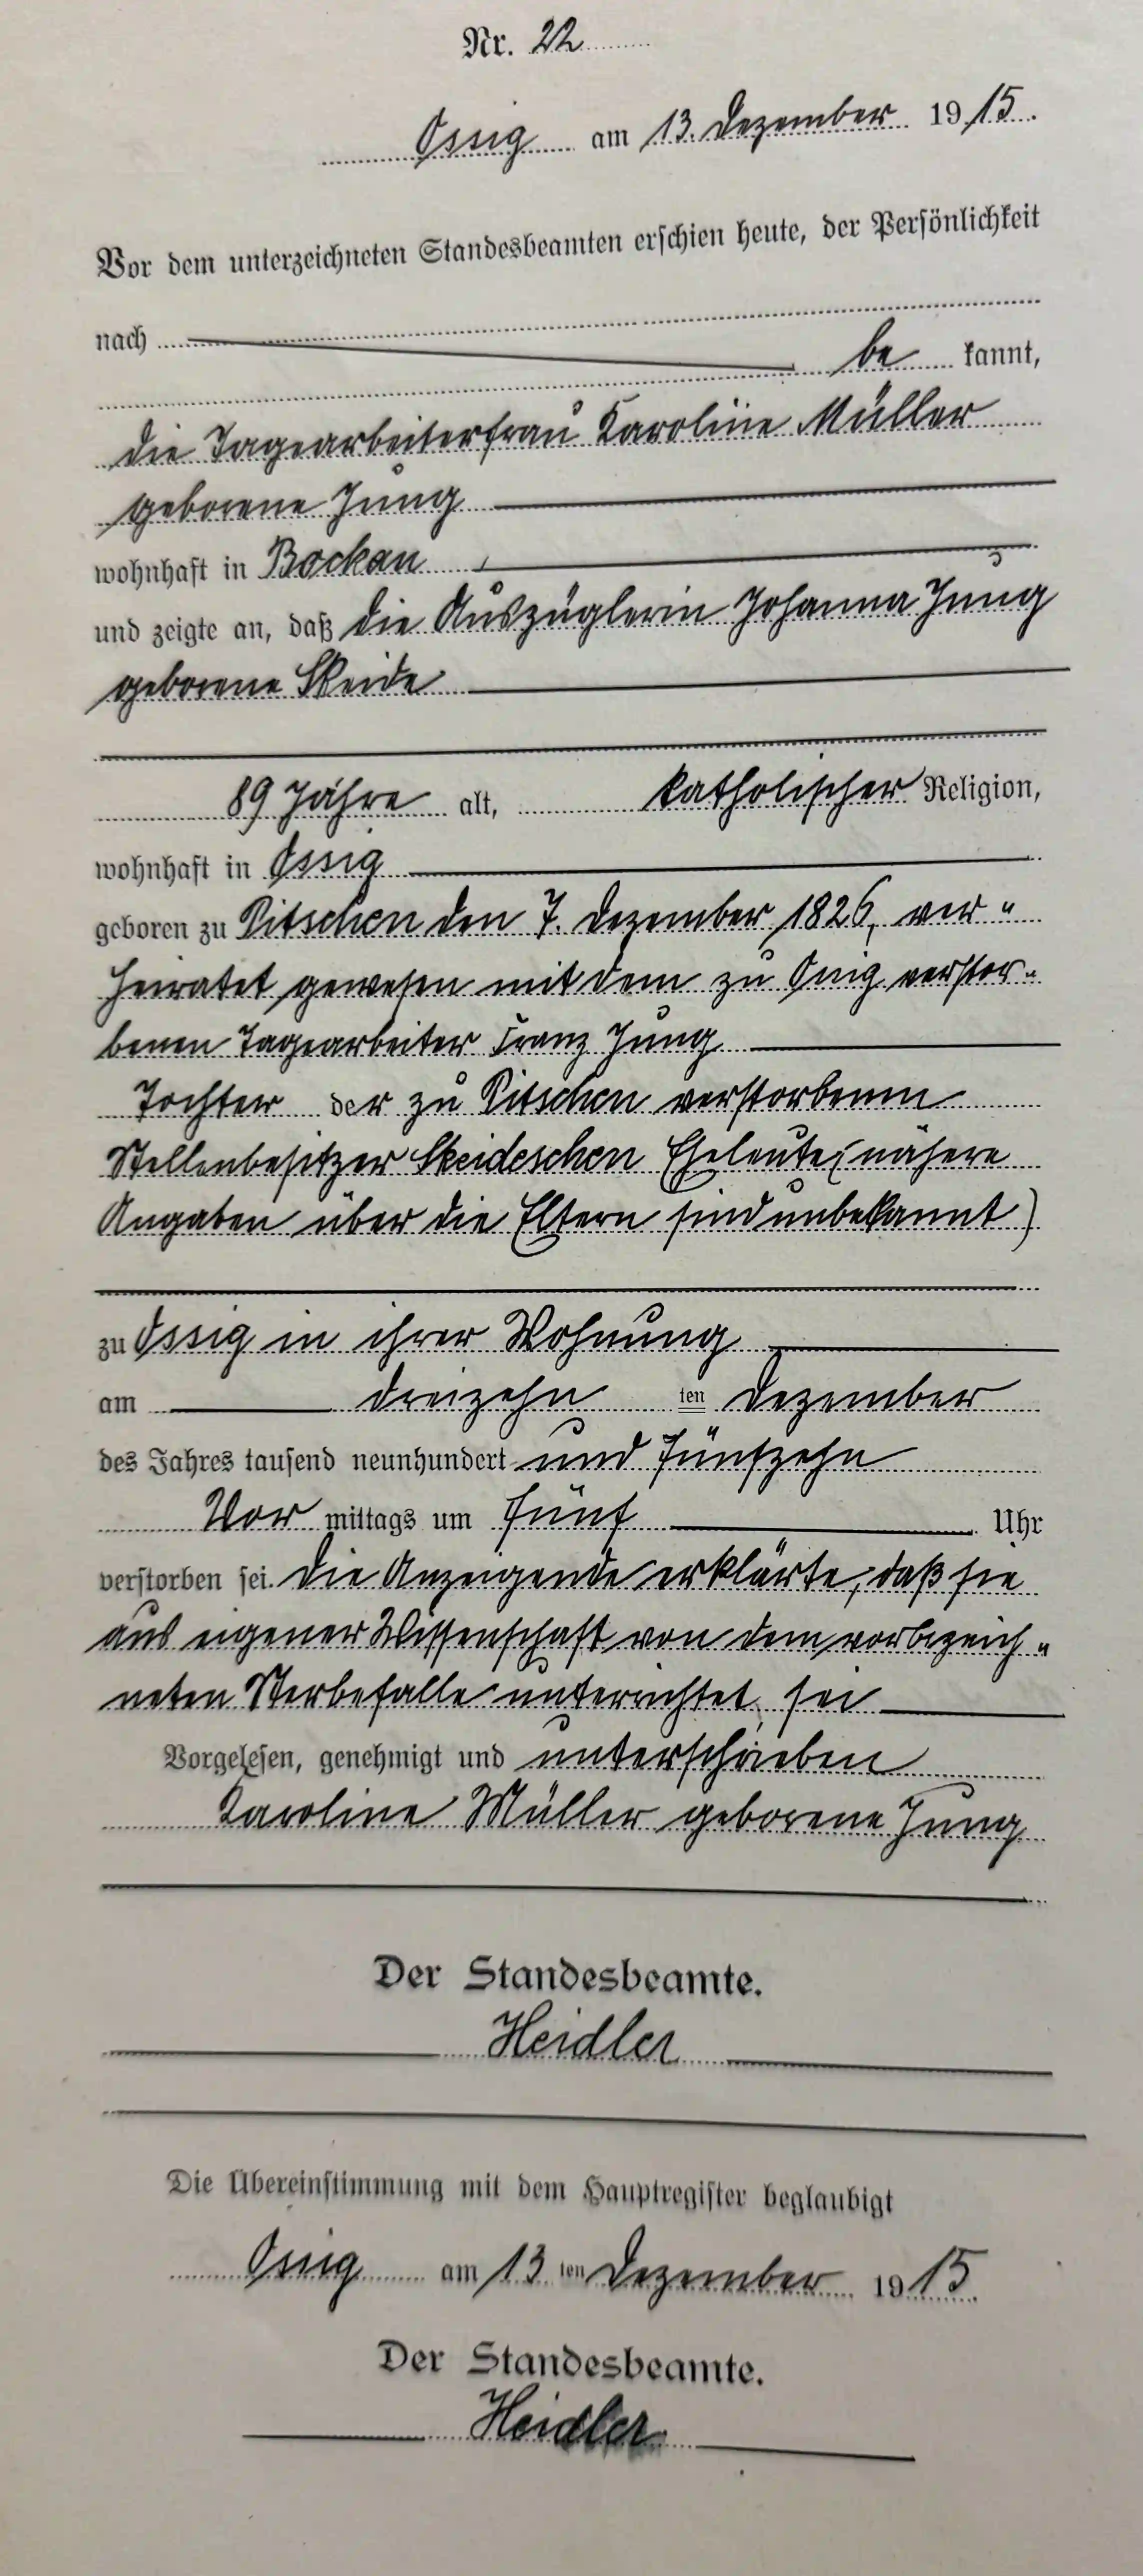 Nr. 22
Ossig am 13. Dezember 1915.
Vor dem unterzeichneten Standesbeamten erschien heute, der Persönlichkeit
nach
be kannt,
die Tagearbeiterfrau Karoline Müller
geborene Jung
wohnhaft in Bockau
und zeigte an, daß die Auszüglerin Johanna Jung
geborene Skeide
89 Jahre alt, katholischer Religion,
wohnhaft in Ossig
geboren zu Pitschen den 7. Dezember 1826, ver"
heiratet gewesen mit dem zu Ossig verstor"
benen Tagearbeiter Franz Jung
Tochter der zu Pitschen verstorbenen
Stellenbesitzer Skeideschen Eheleute (nähere
Angaben über die Eltern sind unbekannt)
zu Ossig in ihrer Wohnung
am dreizehn ten Dezember
des Jahres tausend neunhundert und fünfzehn
Vor mittags um fünf Uhr
verstorben sei. Die Anzeigende erklärte, daß sie
aus eigener Wissenschaft von dem vorbezeich"
neten Sterbefalle unterrichtet sei
Vorgelesen, genehmigt und unterschrieben
Karoline Müller geborene Jung
Der Standesbeamte.
Heidler
Die Übereinstimmung mit dem Hauptregister beglaubigt
Ossig am 13 ten Dezember 1915
Der Standesbeamte.
Heidler